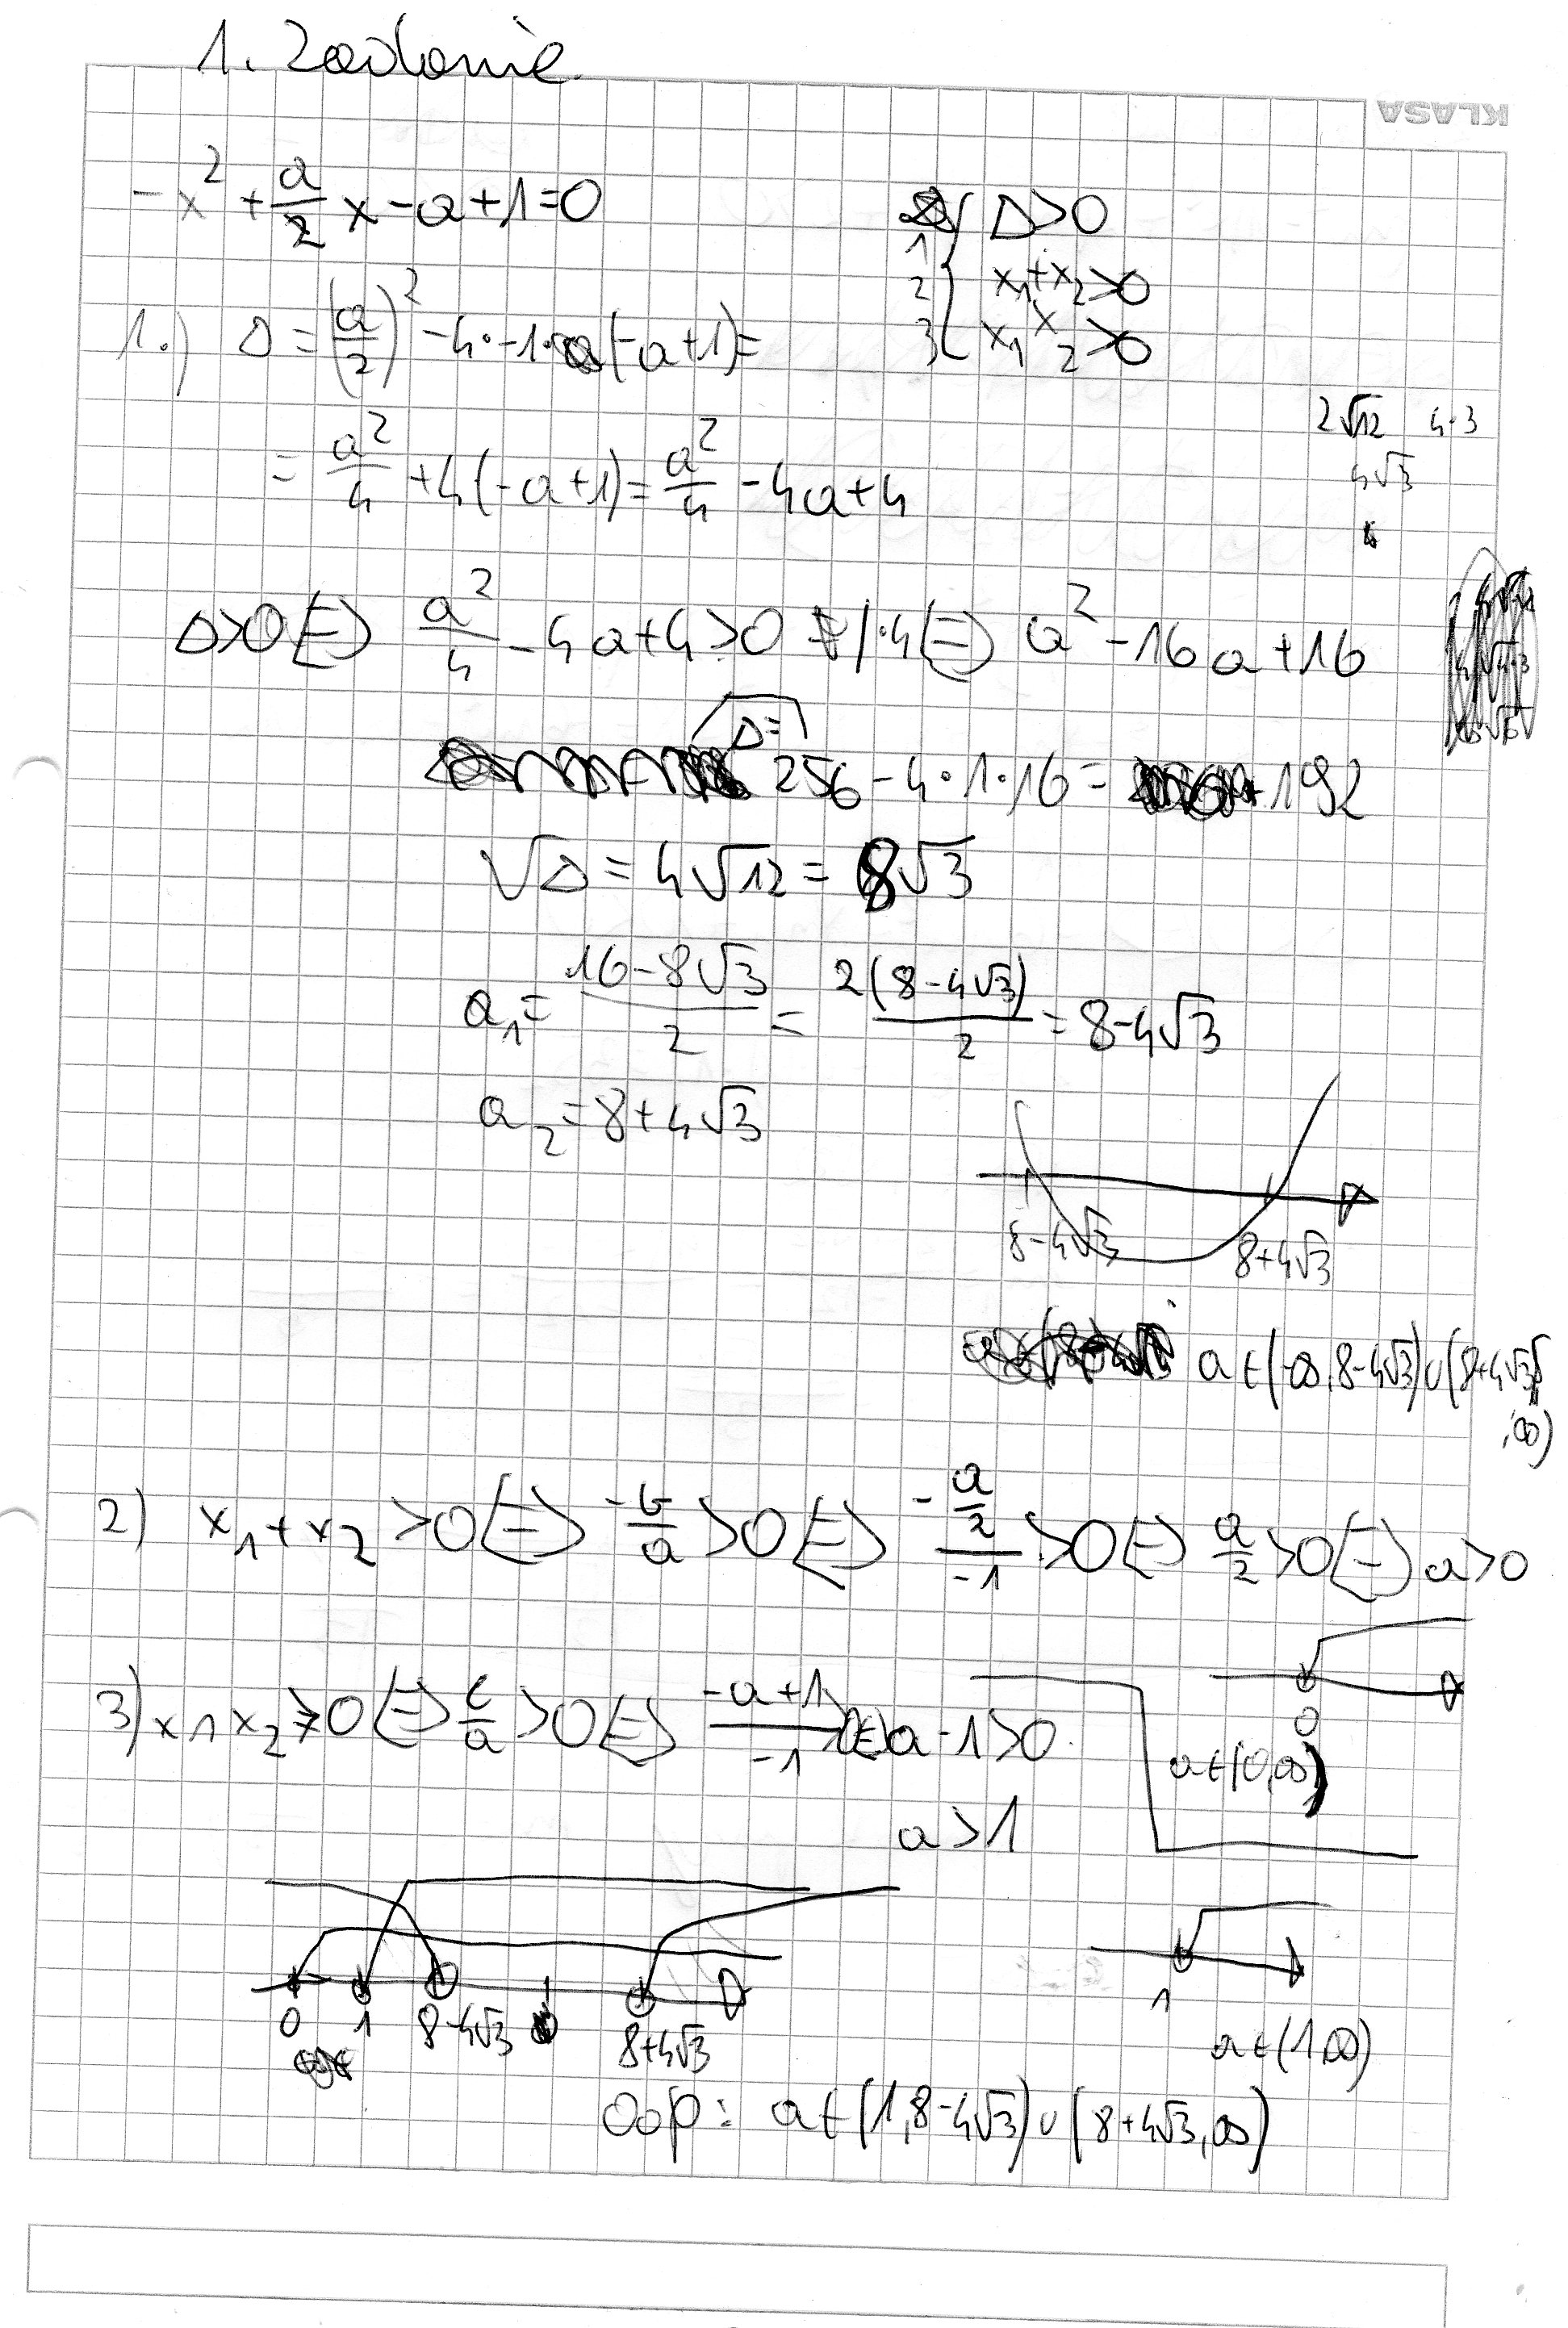 1. Zadanie
KLASA
-x² + a/2 x - a + 1 = 0
Δ > 0
1
2 x₁ + x₂ > 0
3 x₁ x₂ > 0
1.) Δ = (a/2)² - 4 · -1 · (-a+1) =
2√12 4·3
4√3
= a²/4 + 4(-a+1) = a²/4 - 4a + 4
Δ>0 (=) a²/4 - 4a + 4 > 0 /·4 (=) a² - 16a + 16
Δ=
256 - 4·1·16 = 192
√Δ = 4√12 = 8√3
a₁ = (16-8√3)/2 = 2(8-4√3)/2 = 8-4√3
a₂ = 8+4√3
8-4√3 8+4√3
a ∈ (-∞, 8-4√3) ∪ (8+4√3
, ∞)
2) x₁ + x₂ > 0 (=) -b/a > 0 (=) (-a/2)/-1 > 0 (=) a/2 > 0 (=) a > 0
3) x₁ x₂ > 0 (=) c/a > 0 (=) (-a+1)/-1 > 0 (=) a - 1 > 0
0
a ∈ (0, ∞)
a > 1
0 1 8-4√3 8+4√3
1
a ∈ (1, ∞)
Odp: a ∈ (1, 8-4√3) ∪ (8+4√3, ∞)